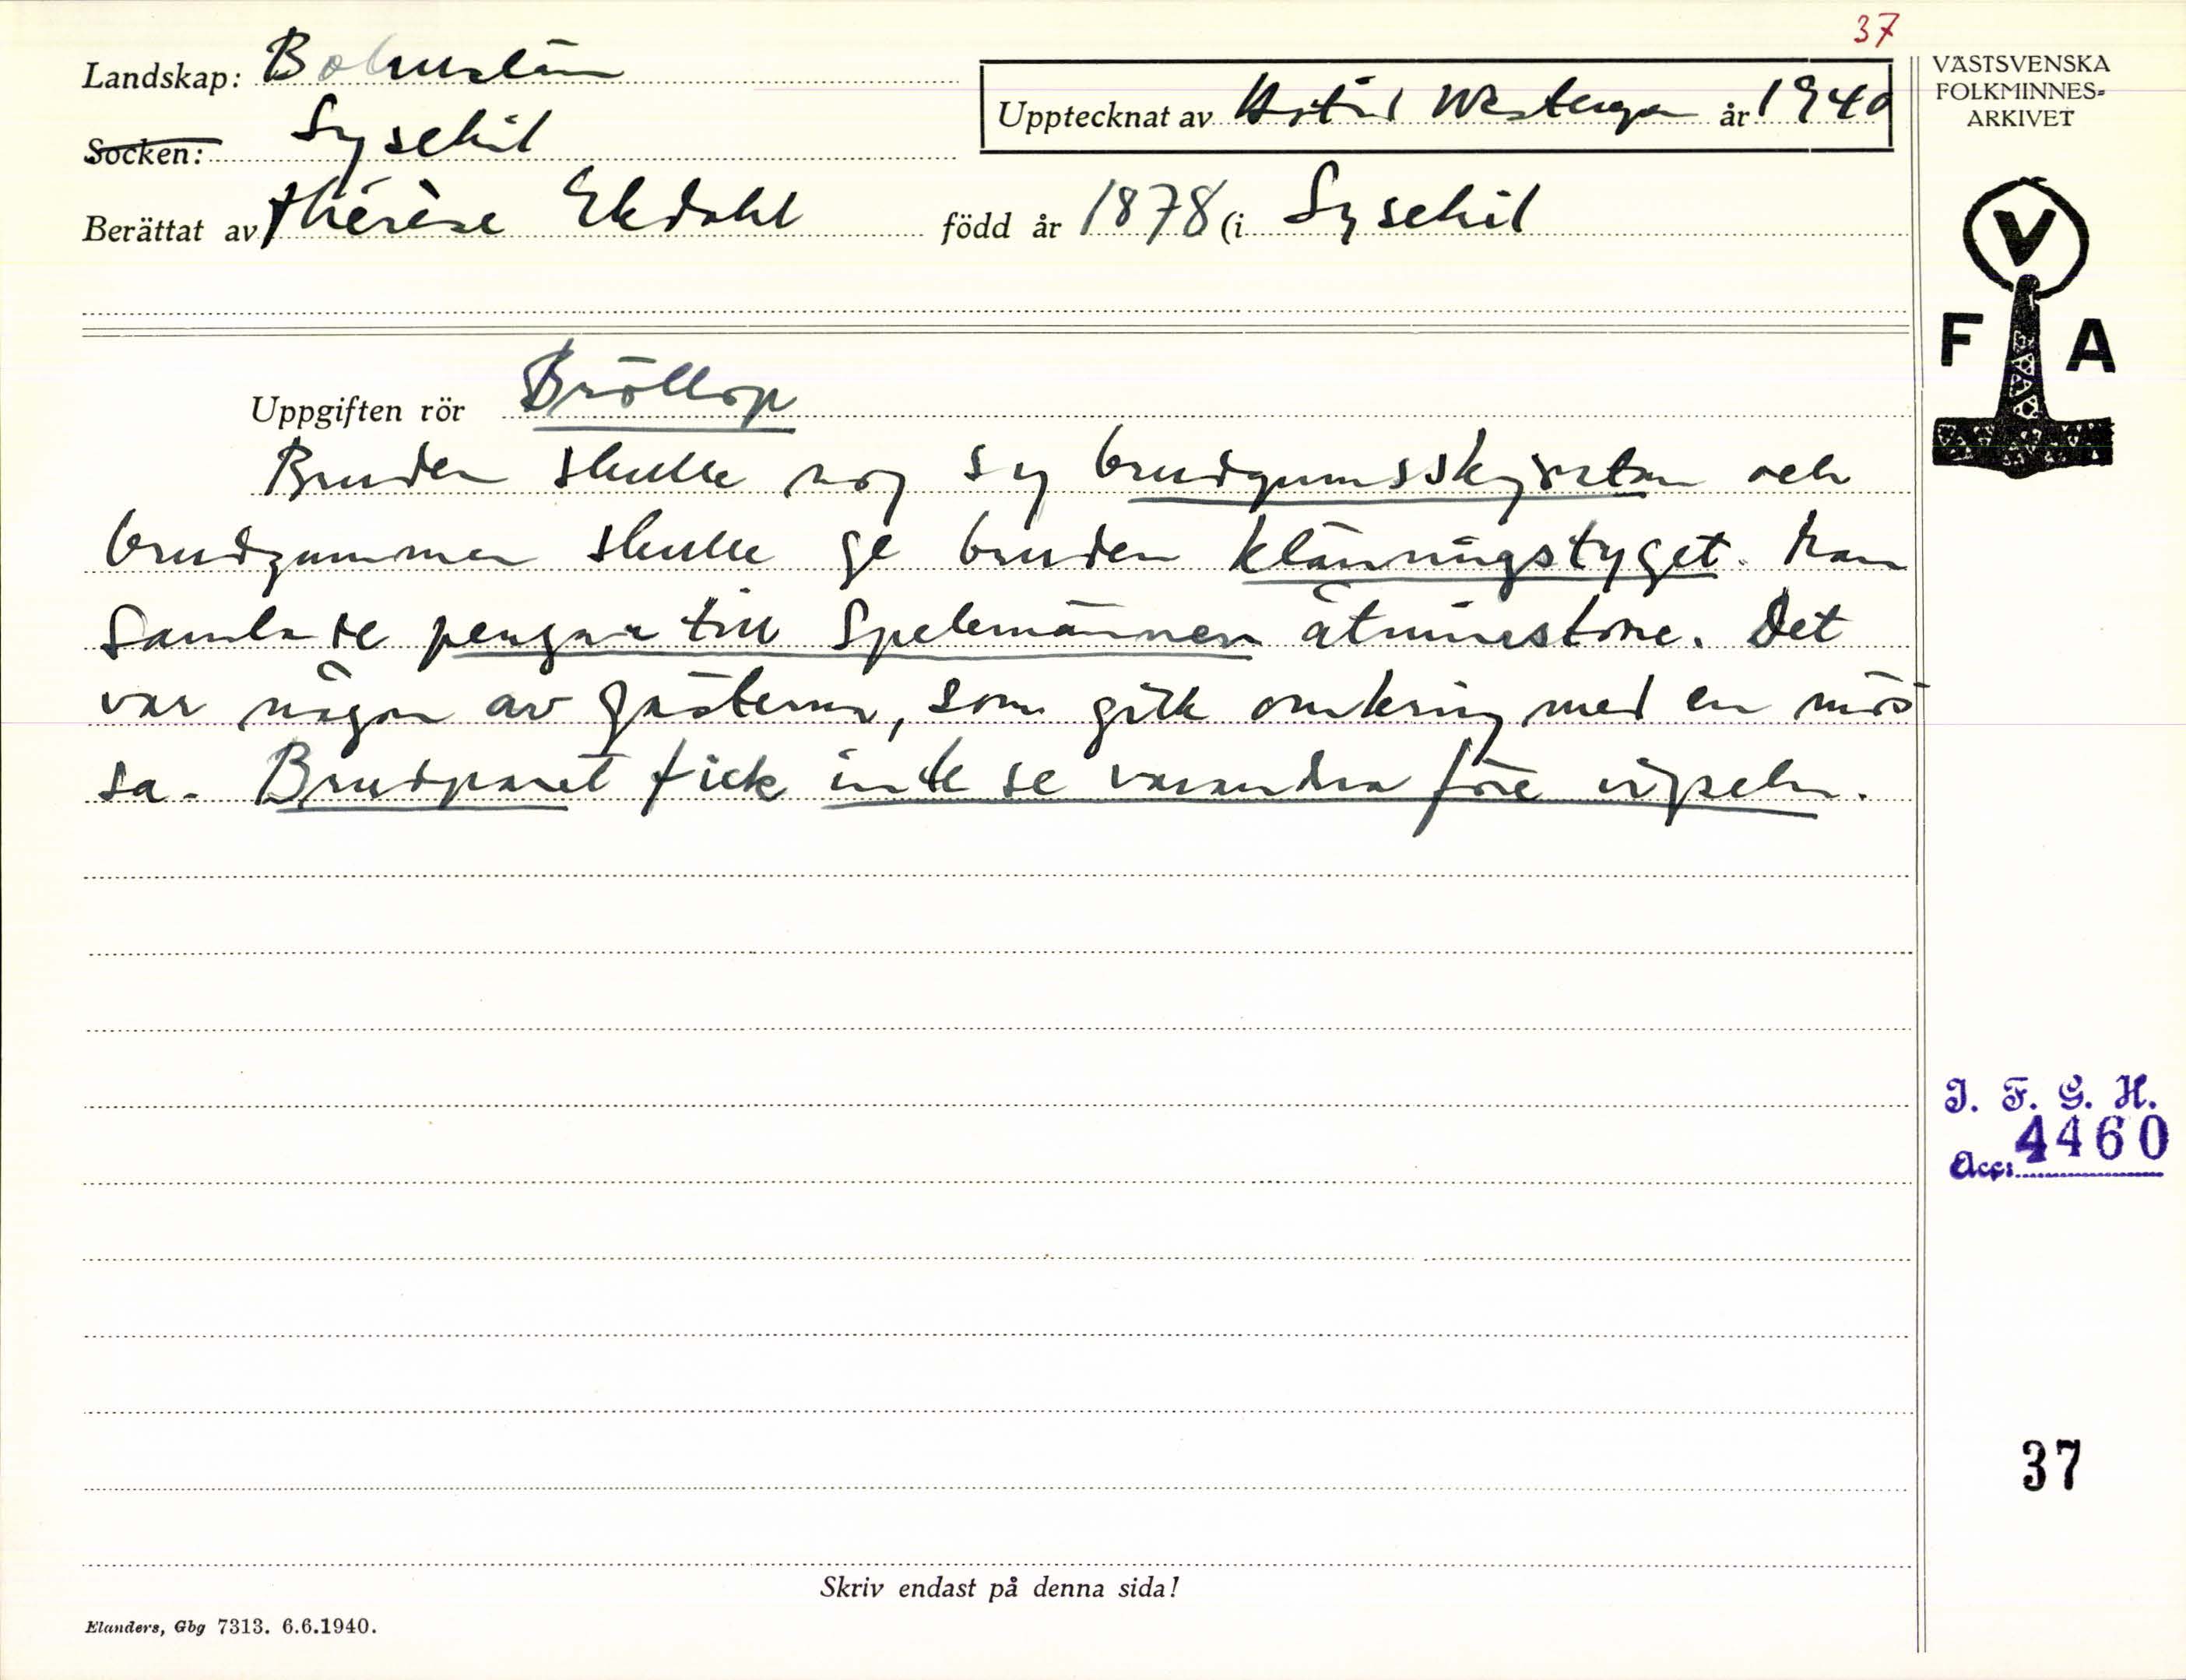 37
Landskap: Bohuslän
Socken: Lysekil
Upptecknat av Astrid Westergren år 1940
Berättat av Thérèse Ekdahl född år 1878 (i Lysekil
VÄSTSVENSKA
FOLKMINNES-
ARKIVET
V
F A
Uppgiften rör Bröllop
Bruden skulle nog sy brudgumsskjortan och
brudgummen skulle ge bruden klänningstyget. Man
samlade pengar till spelemännen åtminstone. Det
var någon av gästerna, som gick omkring med en mös
sa. Brudparet fick inte se varandra före vigseln.
I. F. G. H.
Acc: 4460
37
Skriv endast på denna sida!
Elanders, Gbg 7313. 6.6.1940.